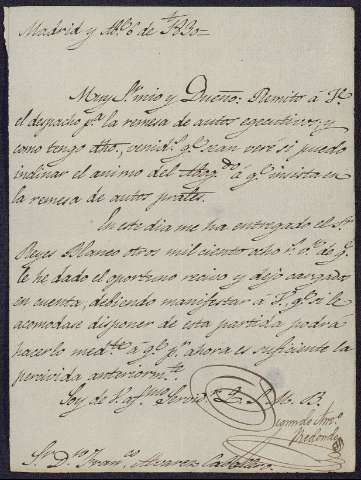 Madrid y Abl. 6 de 1830=
Muy Sr. mio y Dueño: Remito á V.
el despacho pa. la remesa de autos egecutivos, y
como tengo dho., venidos qe. sean veré si puedo
inclinar el animo del Abogdo. á qe. insista en
la remesa de autos prales.
En este dia me ha entregado el Sr.
Reyes Blanco otros mil ciento ocho rs. vn. de qe.
le he dado el oportuno recivo y dejo cargados
en cuenta; debiendo manifestar á V. qe. si le
acomodase disponer de esta partida podrá
hacerlo medte. á qe. pr. ahora es suficiente la
percivida anteriormte.
Soy de V. afmo. Servor. Q. S. M. B.
Juan de
Redondo
Sr. Dn. Franco. Alvarez